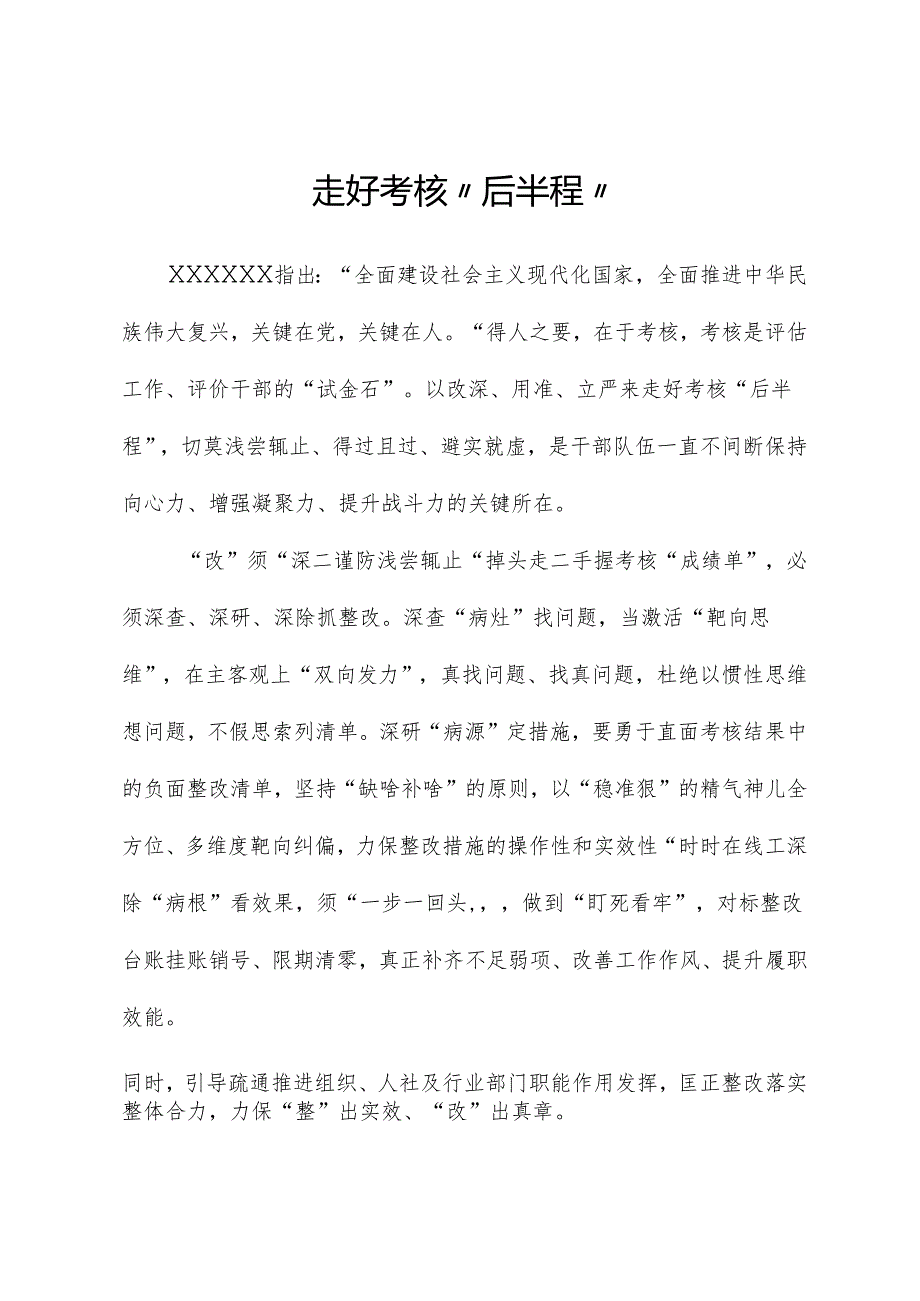 走好考核〃后半程〃
XXXXXX指出：“全面建设社会主义现代化国家，全面推进中华民
族伟大复兴，关键在党，关键在人。“得人之要，在于考核，考核是评估
工作、评价干部的“试金石”。以改深、用准、立严来走好考核“后半
程”，切莫浅尝辄止、得过且过、避实就虚，是干部队伍一直不间断保持
向心力、增强凝聚力、提升战斗力的关键所在。
“改”须“深二谨防浅尝辄止“掉头走二手握考核“成绩单”，必
须深查、深研、深除抓整改。深查“病灶”找问题，当激活“靶向思
维”，在主客观上“双向发力”，真找问题、找真问题，杜绝以惯性思维
想问题，不假思索列清单。深研“病源”定措施，要勇于直面考核结果中
的负面整改清单，坚持“缺啥补啥”的原则，以“稳准狠”的精气神儿全
方位、多维度靶向纠偏，力保整改措施的操作性和实效性“时时在线工深
除“病根”看效果，须“一步一回头,，，做到“盯死看牢”，对标整改
台账挂账销号、限期清零，真正补齐不足弱项、改善工作作风、提升履职
效能。
同时，引导疏通推进组织、人社及行业部门职能作用发挥，匡正整改落实
整体合力，力保“整”出实效、“改”出真章。